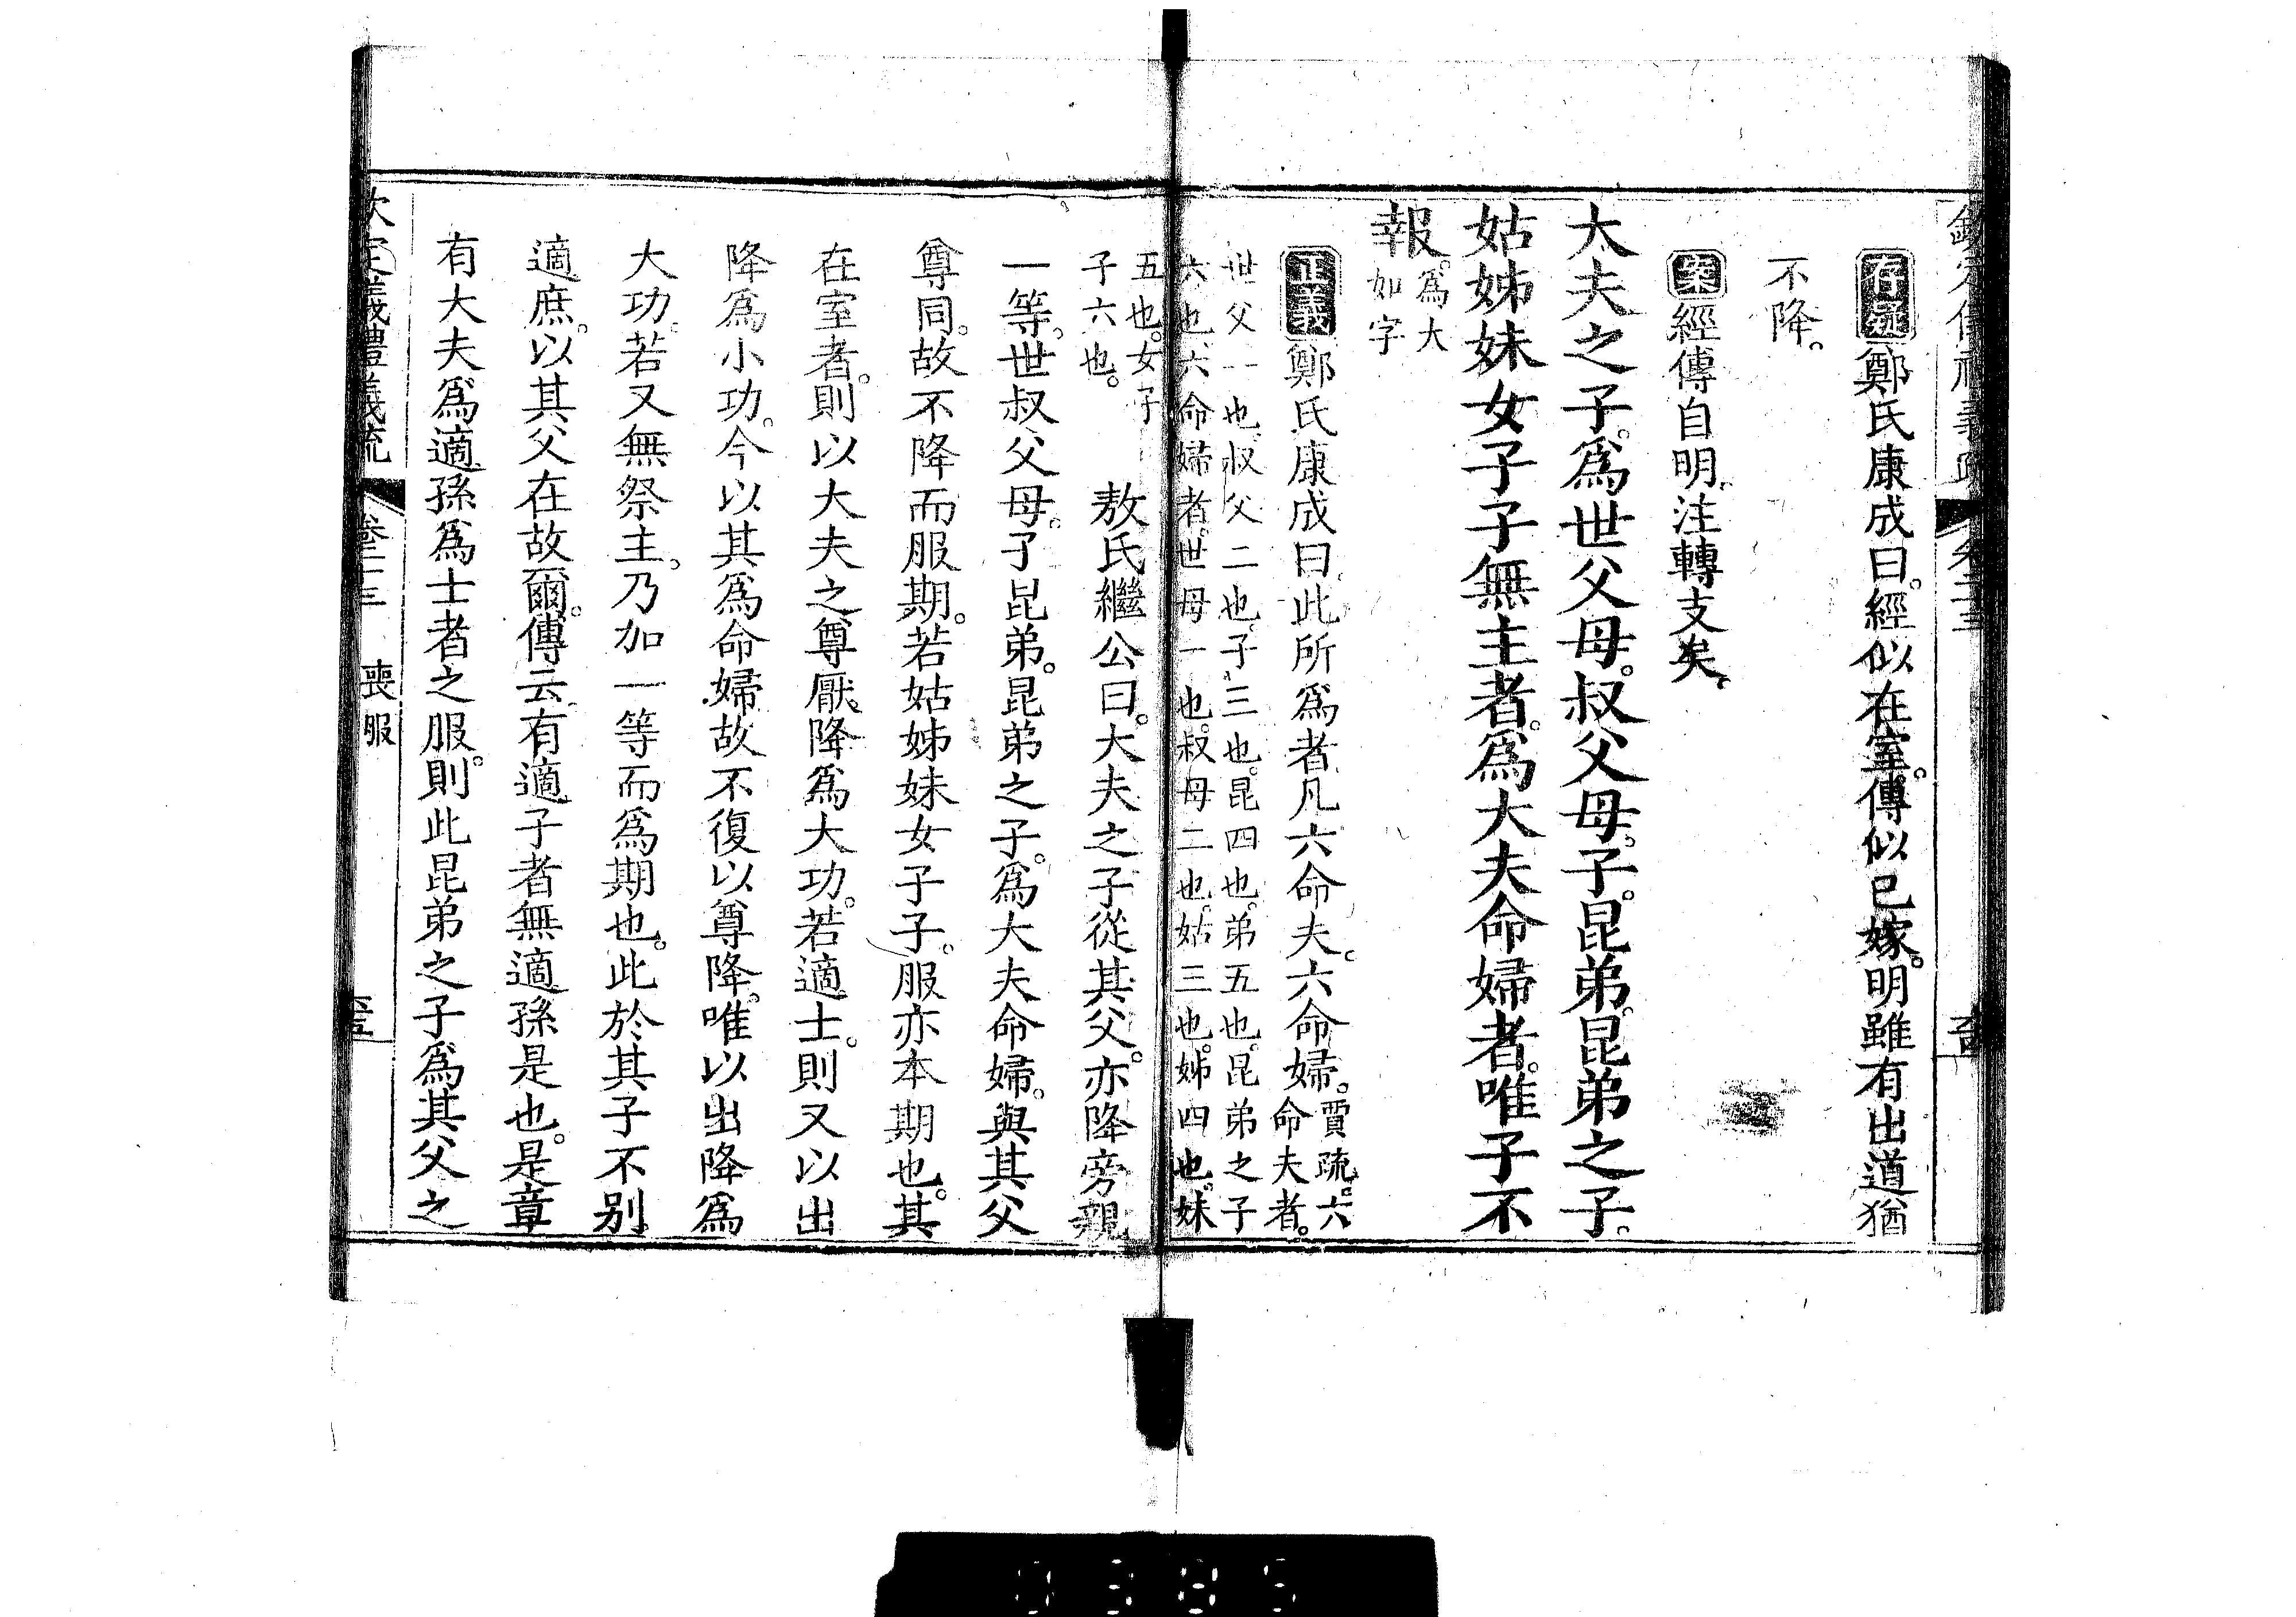 欽定儀禮義疏 卷二十三
存疑鄭氏康成曰。經似在室。傳似已嫁。明雖有出道猶
不降。
案經傳自明。注轉支矣。
大夫之子。爲世父母。叔父母。子。昆弟。昆弟之子。
姑姊妹女子子無主者。爲大夫命婦者。唯子不
報。
爲大
如字
正義鄭氏康成曰。此所爲者凡六命夫。六命婦。
賈疏。六
命夫者。
世父一也。叔父二也。子三也。昆四也。弟五也。昆弟之子
六也。六命婦者。世母一也。叔母二也。姑三也。姊四也。妹
五也。女子
子六也。
敖氏繼公曰。大夫之子從其父。亦降旁親
一等。世叔父母。子昆弟。昆弟之子。爲大夫命婦。與其父
尊同。故不降而服期。若姑姊妹女子子。服亦本期也。其
在室者。則以大夫之尊厭。降爲大功。若適士。則又以出
降爲小功。今以其爲命婦故不復以尊降。唯以出降爲
大功。若又無祭主。乃加一等而爲期也。此於其子不别
適庶。以其父在故爾。傳云有適子者無適孫是也。是章
有大夫爲適孫爲士者之服。則此昆弟之子爲其父之
欽定儀禮義疏 卷二十三 喪服